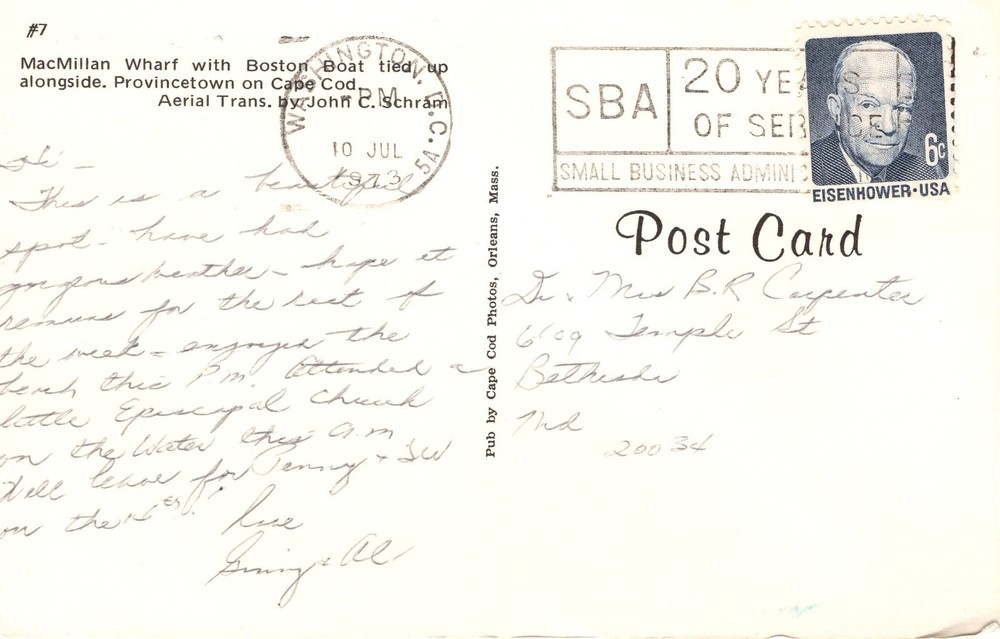 #7
MacMillan Wharf with Boston Boat tied up
alongside. Provincetown on Cape Cod.
Aerial Trans. by John C. Schram
WASHINGTON, D.C.
PM
10 JUL
1973
5A
SBA
20 YEARS
OF SERVICE
SMALL BUSINESS ADMINIS
6c
EISENHOWER·USA
Post Card
Pub by Cape Cod Photos, Orleans, Mass.
Hi -
This is a beautiful
spot - have had
gorgeous weather - hope it
remains for the rest of
the week - enjoyed the
beach this P.M. Attended a
little Episcopal Church
on the Water this a.m
Will leave for Penny +
on the 16th!
Love
Ginny + Al
Dr + Mrs B.R Carpenter
6109 Temple St
Bethesda
Md
20034